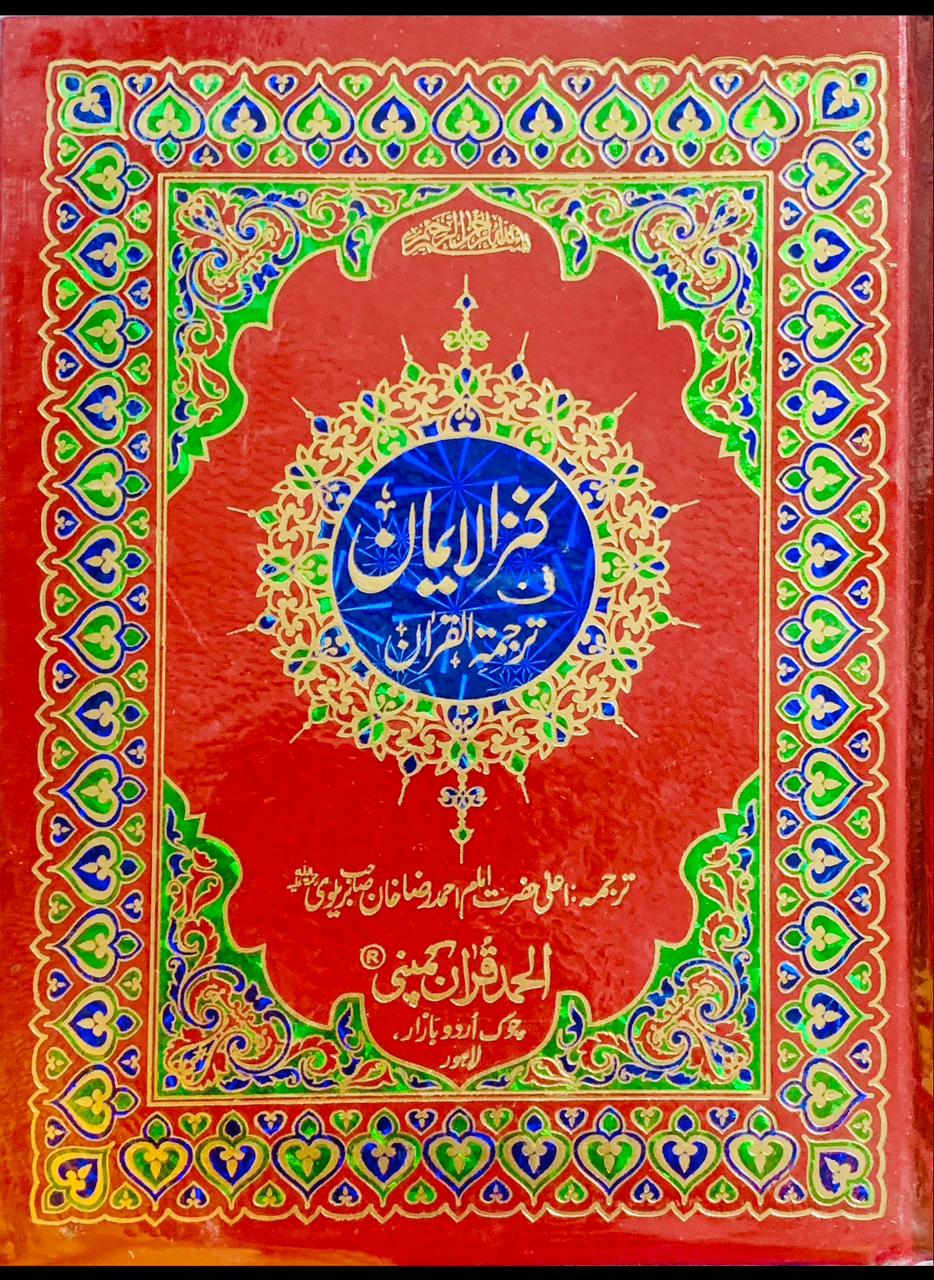 بسم الله الرحمن الرحيم
کنز الایمان
فی
ترجمۃ القرآن
ترجمہ: اعلیٰ حضرت امام احمد رضا خان صاحب بریلوی رحمۃ اللہ علیہ
الحمد قرآن کمپنی ®
چوک اُردو بازار،
لاہور